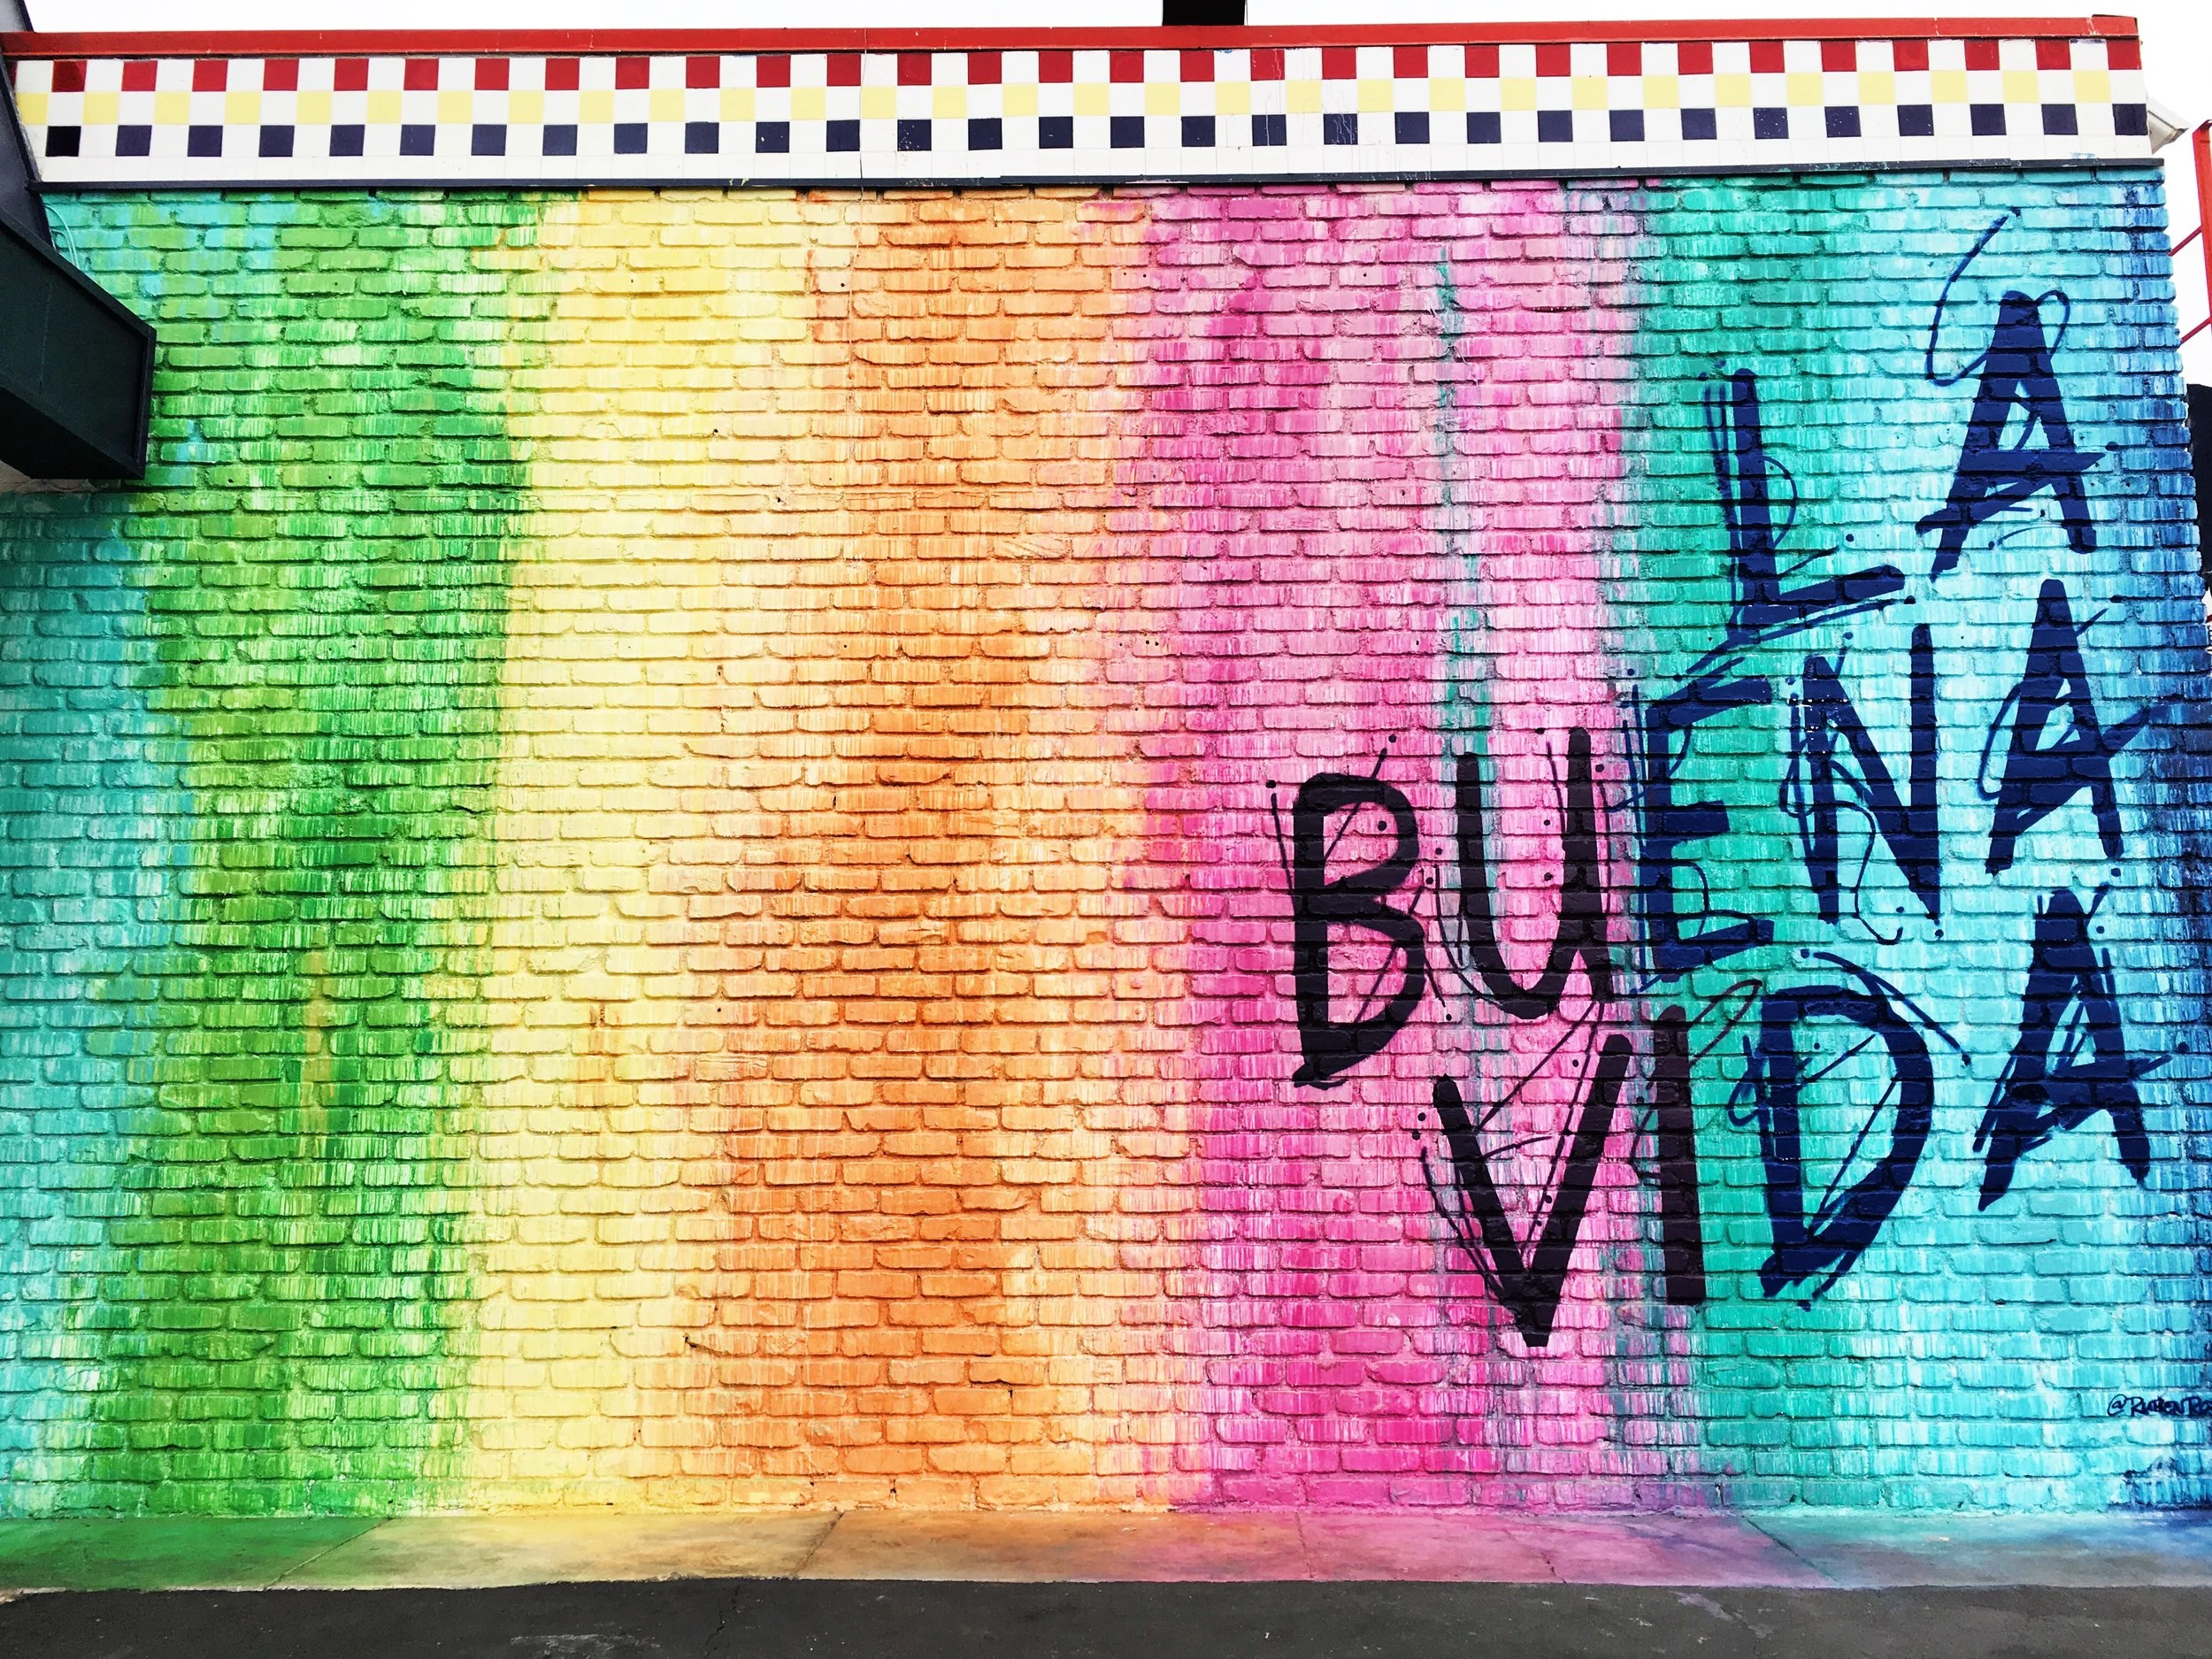 LA
BUENA
VIDA